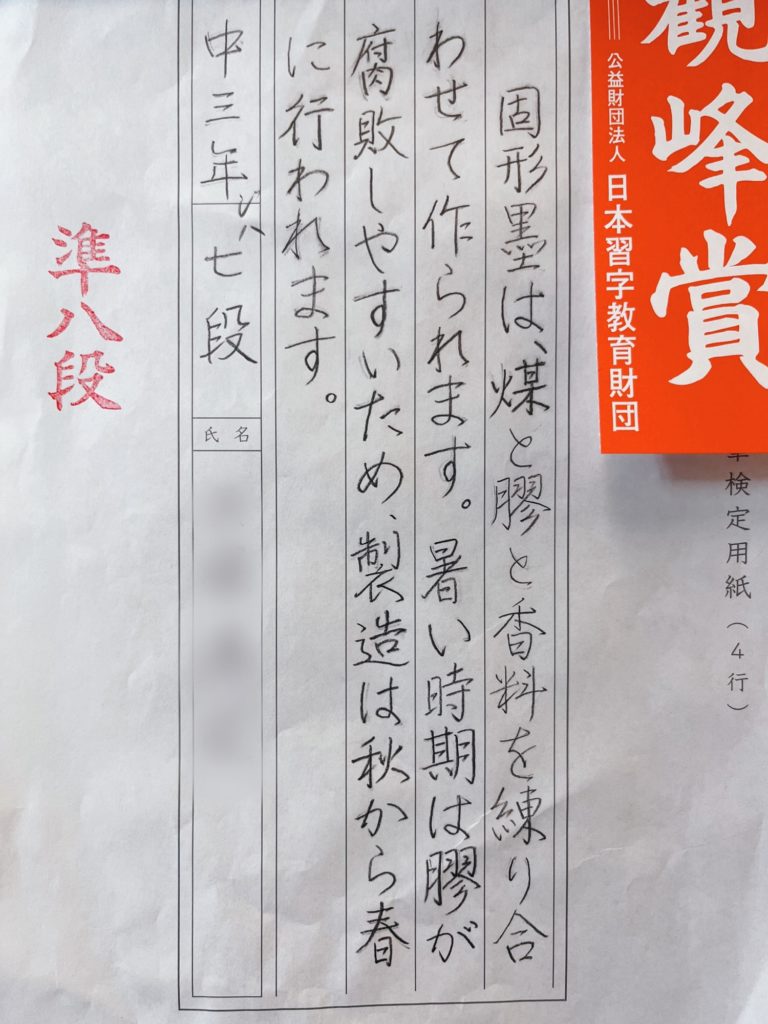 観峰賞
公益財団法人 日本習字教育財団
検定用紙(4行)
固形墨は、煤と膠と香料を練り合
わせて作られます。暑い時期は膠が
腐敗しやすいため、製造は秋から春
に行われます。
中三年 七段
氏名
準八段